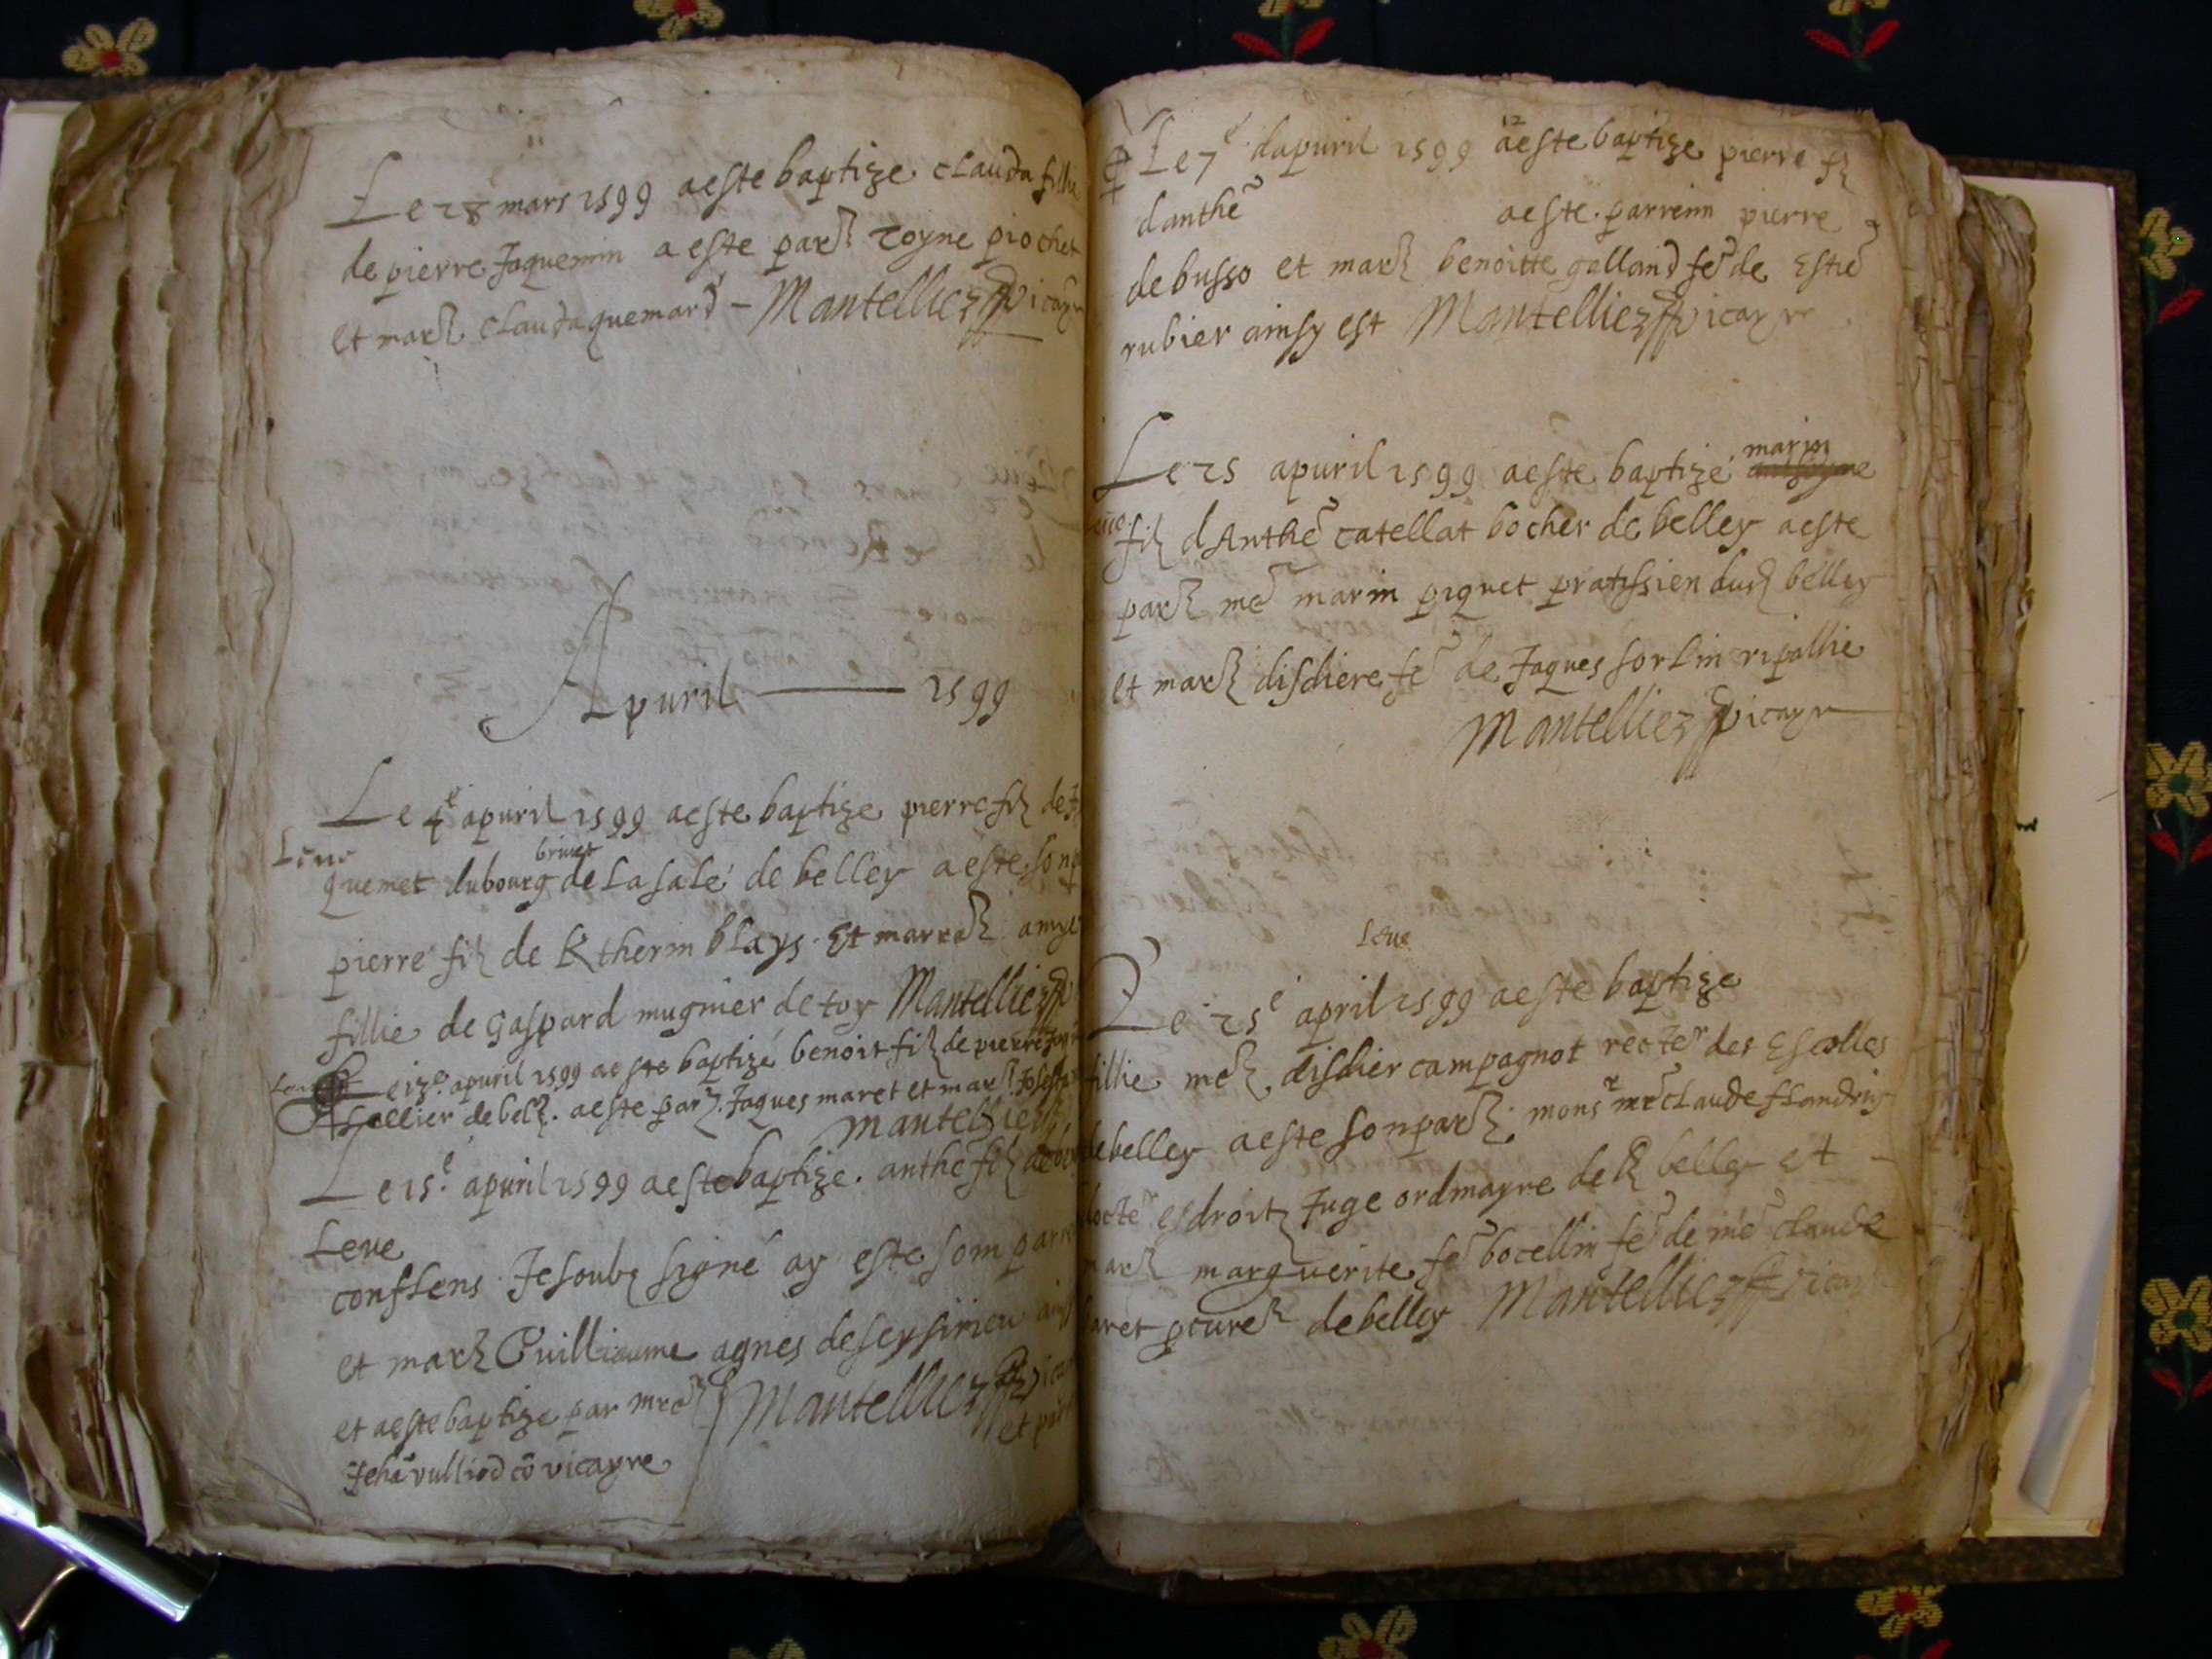 Le 28 mars 1599 a este baptize clauda fillie
de pierre Jaquemin a este parz toyne piochet
et marz clauda quemard - Mantellier vicayre
Apuril — 1599
Le 4e apuril 1599 a este baptize pierre filz de
Leue
brunet
quemet dubourg de la sale de belley a este son
pierre filz de Ktherin blays. Et marrez
fillie de Gaspard mugnier de toy Mantellier
Le 13e apuril 1599 a este baptizé benoit filz de pierre
sellier de belz. a este parz. Jaques maret et marz
Mantellier
Le 15e apuril 1599 a este baptize. anthe filz
Leue
conflens. Je soubz signé ay este som
et marz Guilliaume agnes de seyssirieu
et a este baptize par mre Mantellier
Jehã vulliod cõ vicayre et
Le 7e dapuril 1599 a este baptize pierre fz
12
danthe a este. parrein pierre
de busso et marz benoitte galland fe de Estie
rubier ainsy est Mantellier vicayre
marin
Le 25 apuril 1599 a este baptizé
filz dAnthe catellat bocher de belley a este
parz me marin piquet pratissien dudz belley
et marz disdiere fe de Jaques sorlin ripallie
Mantellier vicayre
Leue
Le 25e april 1599 a este baptize
fillie mez disdier campagnot recter des Escolles
de belley a este son parz. monsr mre claude flandrin
docter es droitz Juge ordinayre de belley et
marz marguerite fe bocellin fe de me claude
de belley Mantellier